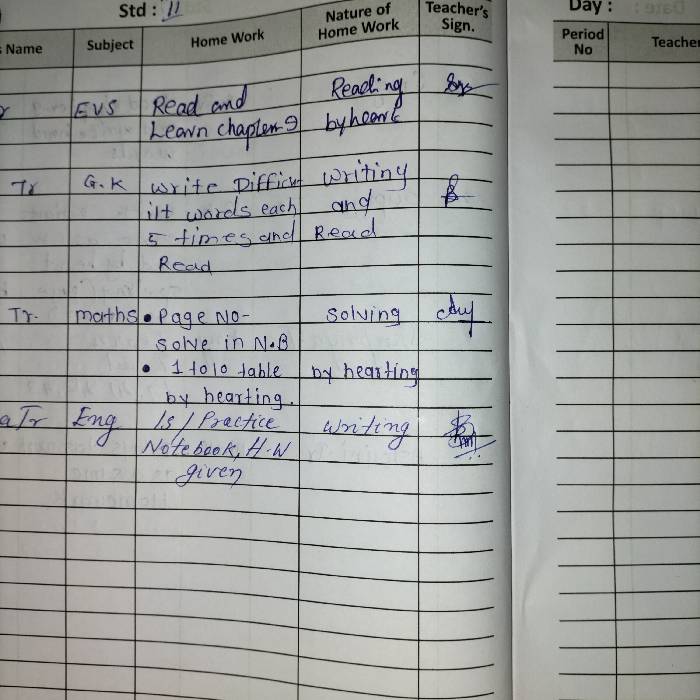 Std : II
Day :
Name Subject Home Work Nature of Home Work Teacher's Sign.
Period No Teacher
EVS Read and Reading
Learn chapter 9 byheart
Tr G.K write Difficu writing
ilt words each and
5 times and Read
Read
Tr. maths • Page No- solving
solve in N.B
• 1 to 10 table by hearting
by hearting.
a Tr Eng Practice writing
Notebook, H.W
given